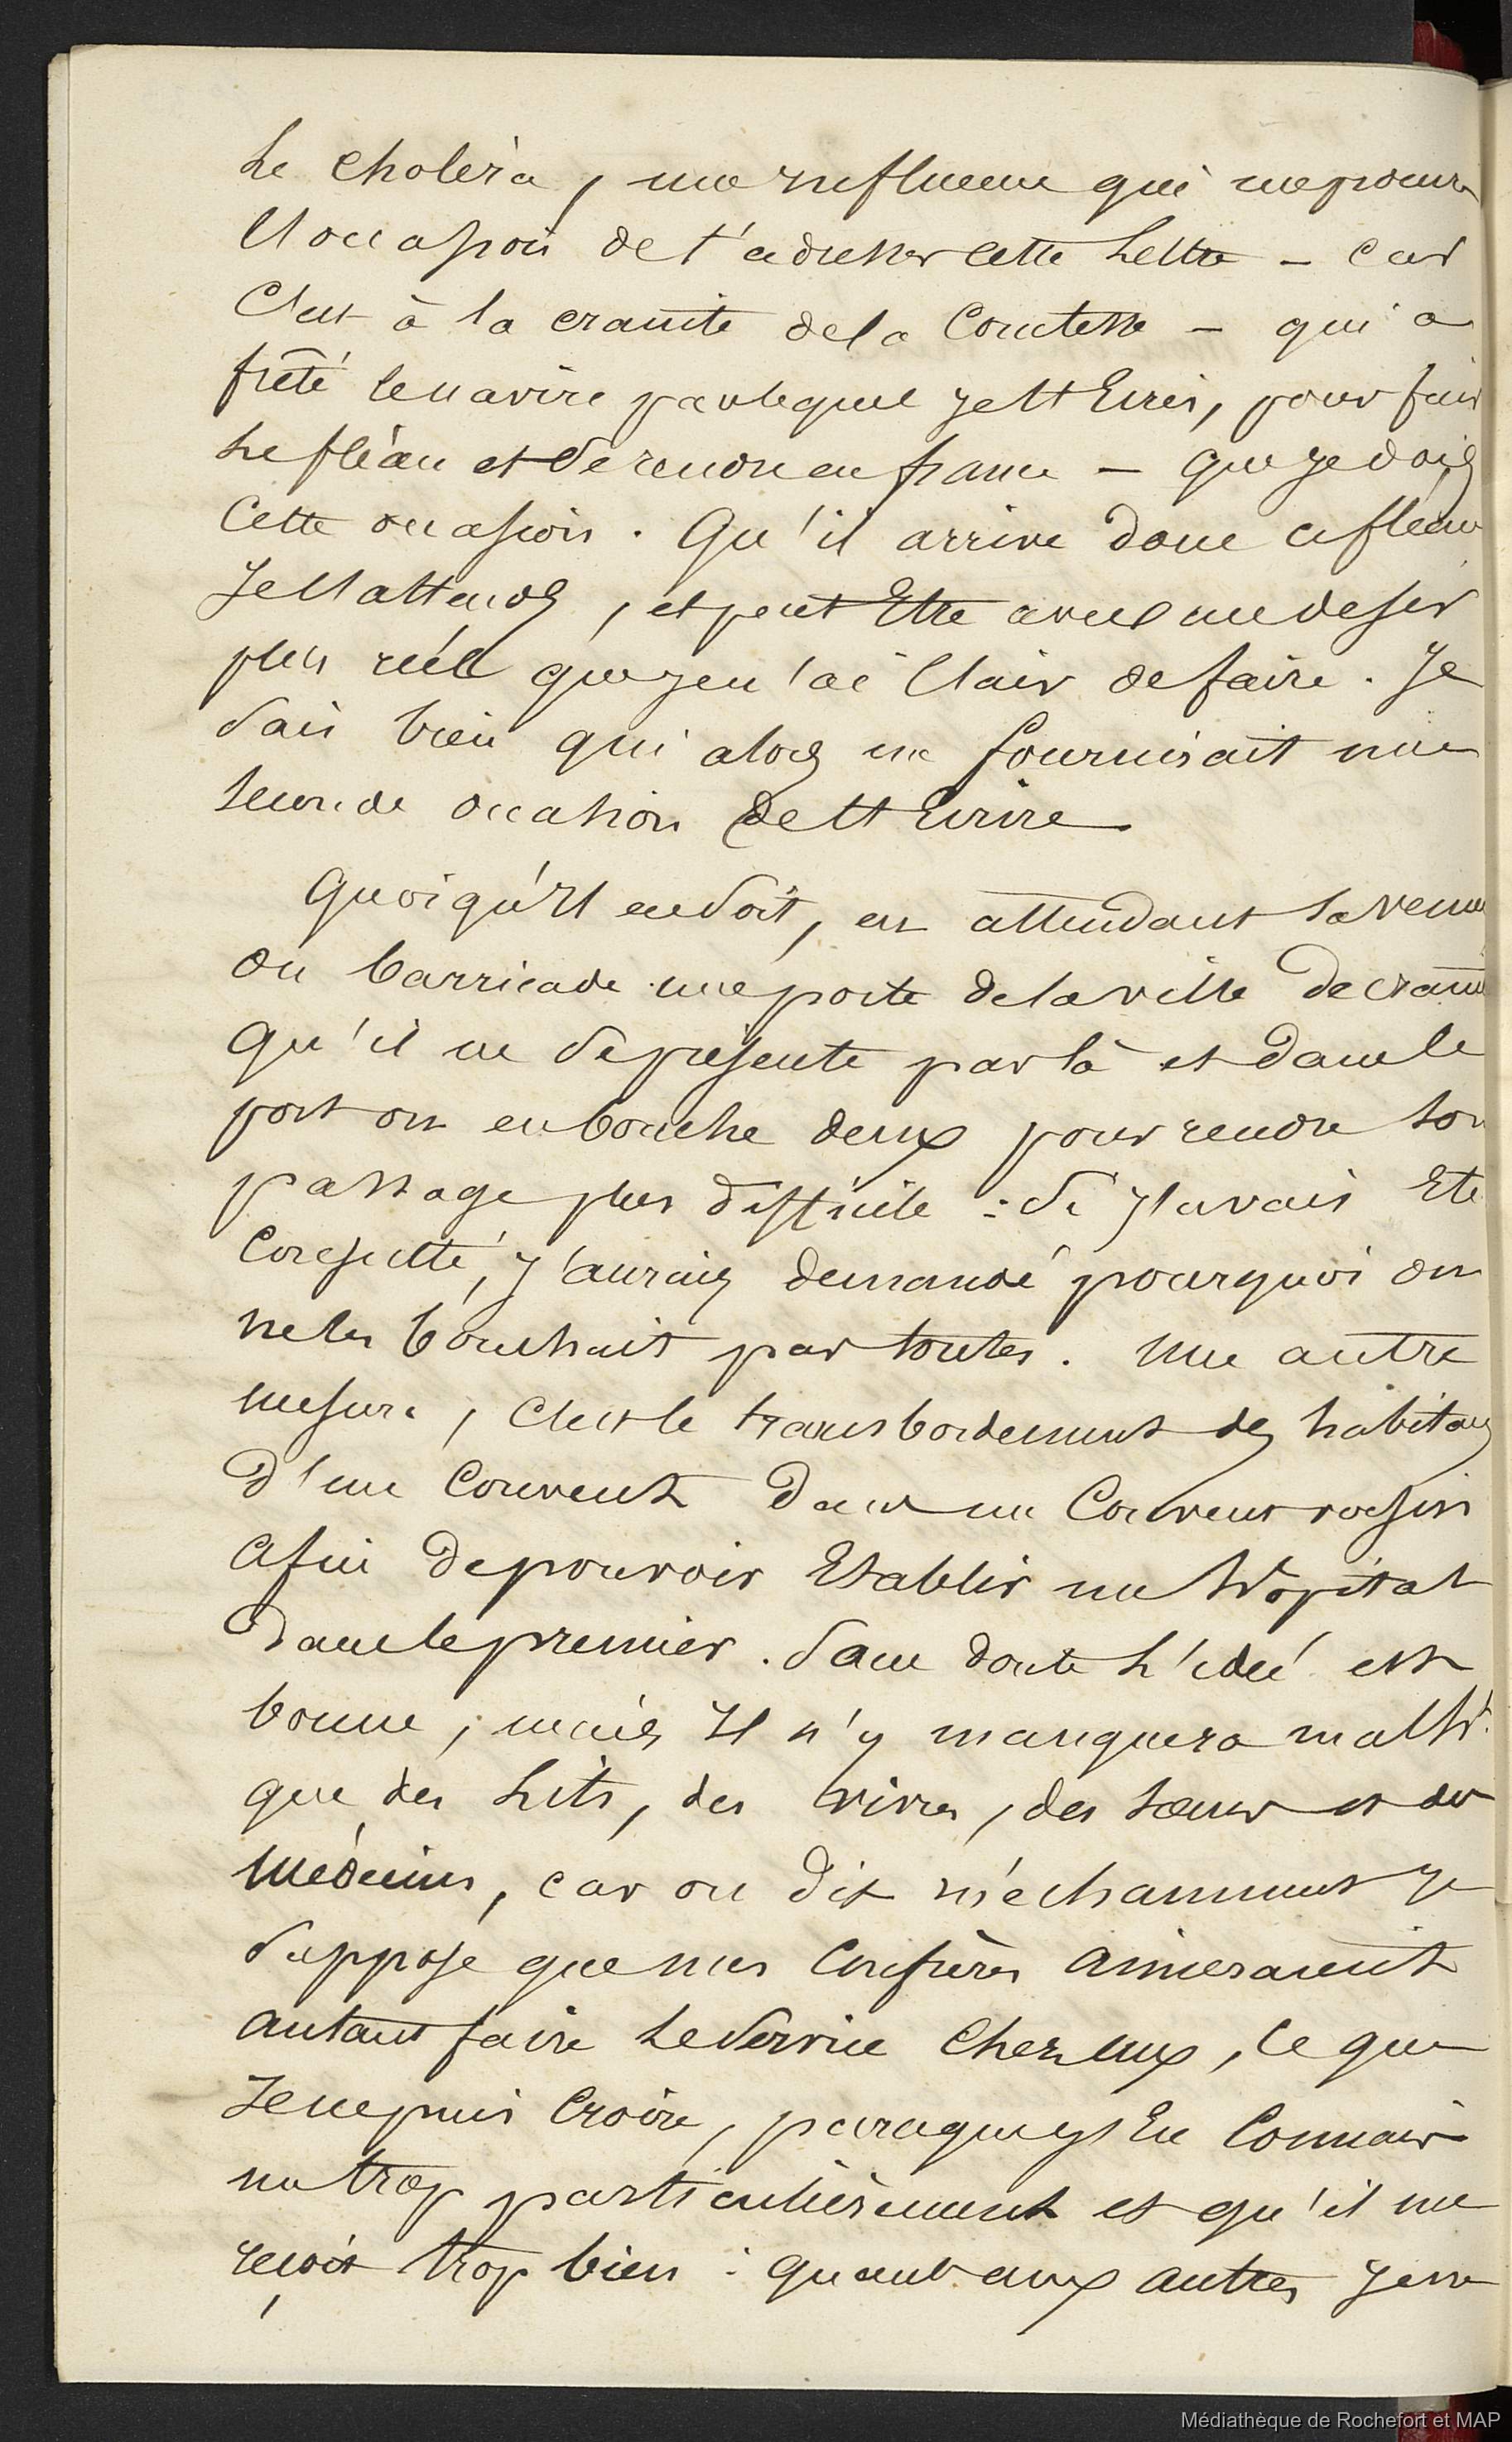 Le cholera, une influence qui me procure
l'occasion de t'adresser cette Lettre – car
C'est à la crainte de la Comtesse – qui a
frêté le navire par lequel je t'Ecris, pour fuir
Le fléau et se rendre en france – que je dois
Cette occasion. Qu'il arrive donc ce fléau
Je l'attends, et peut Etre avec un desir
plus réél que je n'ai l'air de faire. Je
Sais bien qui alors me fournirait une
seconde occasion de t'Ecrire
Quoiqu'Il en soit, en attendant sa venue
On barricade une porte de la ville de crainte
Qu'il ne se présente par là et dans le
port on en bouche deux pour rendre son
passage plus difficile : Si j'avais Eté
Consulté, j'aurais demandé pourquoi on
ne les bouchait pas toutes. Une autre
mesure, C'est le transbordement des habitans
D'un Couvent Dans un Couvent voisin
Afin De pouvoir Etablir un hôpital
Dans le premier. Sans doute L'idée est
bonne, mais Il n'y manquera
que des Lits, des vivres, des sœurs et des
Médecins, car on dit méchamment je
Suppose que mes Confrères Aimeraient
Autant faire Le Service Chez eux, Ce que
Je ne puis Croire, parceque j'En Connais
un trop particulièrement et qu'il me
reçoit trop bien : quant aux autres je ne
Médiathèque de Rochefort et MAP